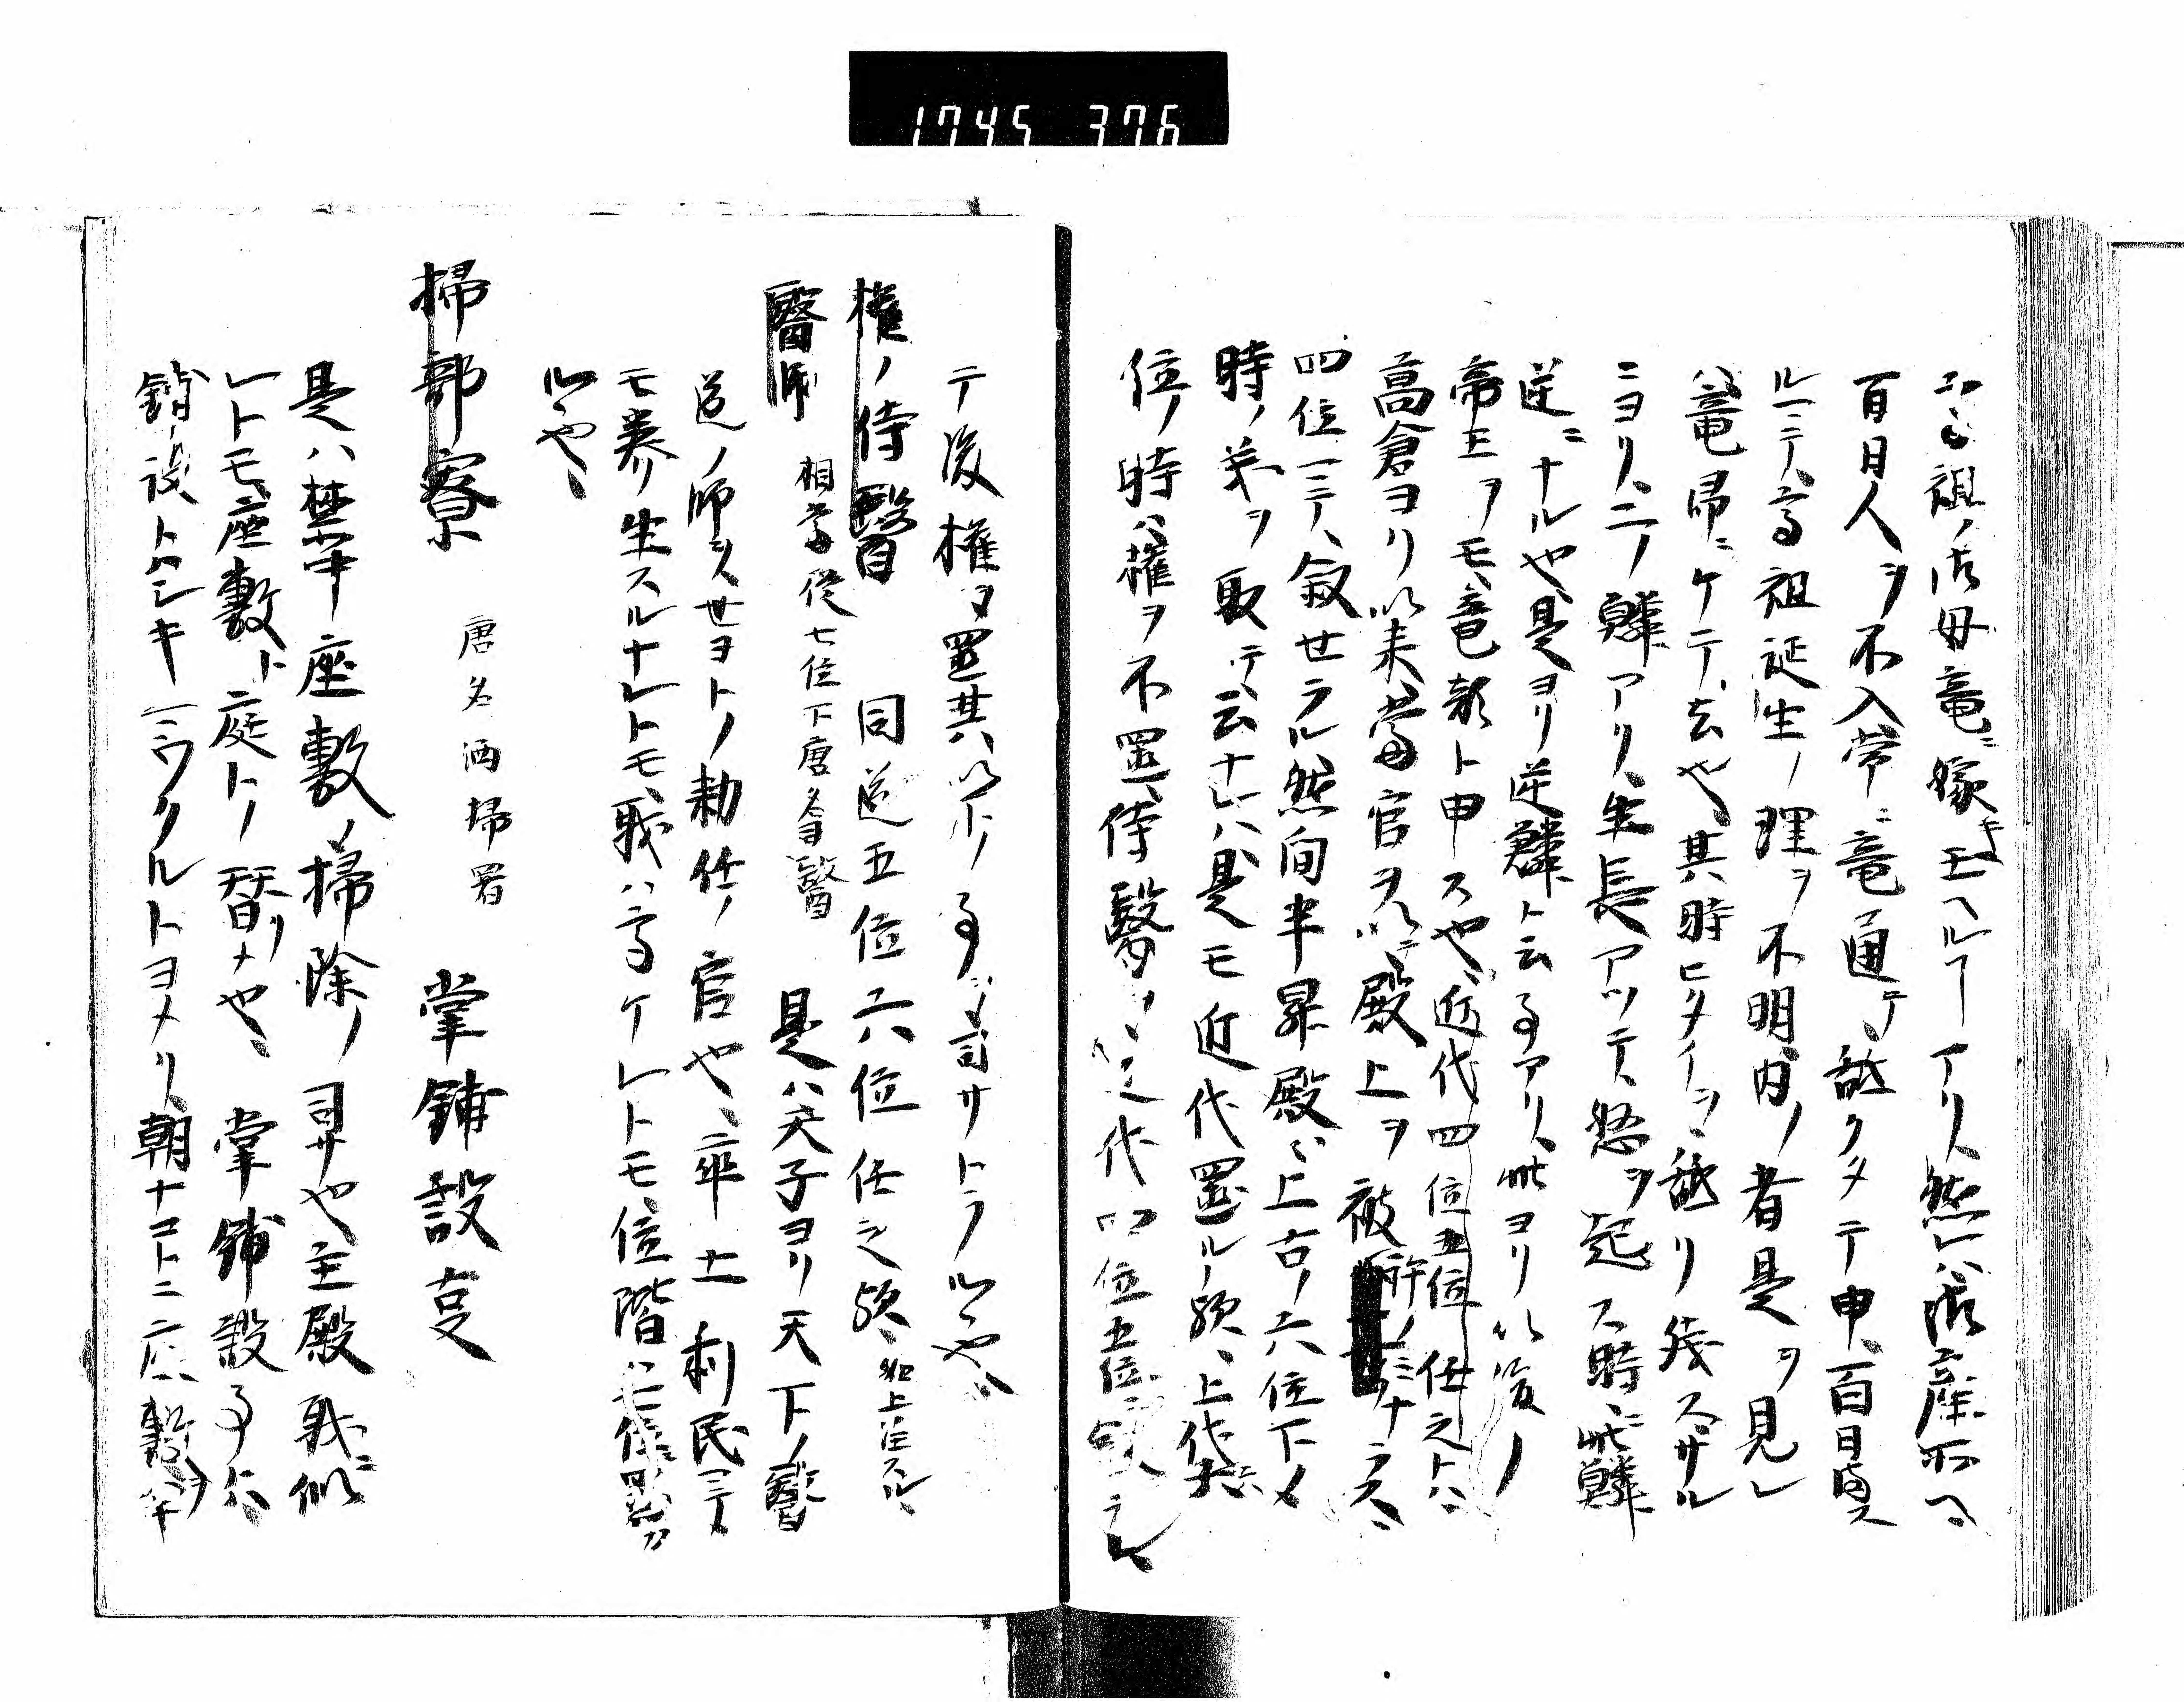 1745 376
祖ノ御母竜ニ嫁キ玉ヘルヿアリ、然レハ御産所ヘ
百日人ヲ不入、常ニ竜通テ舐クタテ申、百日過ス
ルニテ、高祖延生ノ理ヲ不明内ノ者是ヲ見レ
ハ、竜帰ニケテ去也、其時ヒタイヲ舐リ残スサル
ニヨリ、二ノ鱗アリ、生長アツテ、怒ヲ起ス時、此鱗
逆ニナル也、是ヨリ逆鱗ト云事アリ、此ヨリ以後ノ
帝王ヲモ竜顔ト申ス也、近代四位五位任之トハ
高倉ヨリ以来、当官ヲ以テ殿上ヲ被許ノミナラス、
四位ニテ、叙セラル、然間半昇殿ハ上古ノ六位下メ
時ノ第ヲ取テ云ナレハ、是モ近代置ル欤、上代六
位ノ時ハ権ヲ不置、侍医 近代四位五位
テ後権ヲ置、其ハ以下ノ事ヲ司サトラルヽ也
権ノ侍醫 同 近五位六位任之欤、如上任スル、
醫師 相当従七位下唐名医 是ハ天子ヨリ天下ノ醫
道ノ師ヲスセヨトノ勅任ノ官也、率土利民ニテメ
モ養生スルナレトモ、職ハ高ケレトモ、位階ハ七位
ルヽ也、
掃部寮 唐名洒掃署 掌鋪設事
是ハ禁中座敷ノ掃除ノ司サ也、主殿職ニ似
レトモ、座敷ト庭トノ替リメ也、掌鋪設事ハ、
鋪設トハシキミウクルトヨメリ、朝ナコトニ座敷ヲ